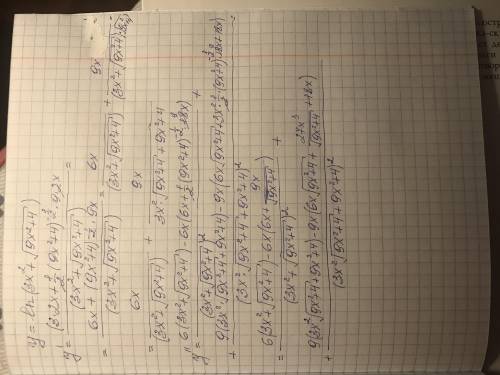 y = ln(3x² + √(9x²+4))
y' = (3·2x + 1/2 (9x²+4)^(-1/2) · 9·2x) / (3x² + √(9x²+4)) =
= (6x + (9x²+4)^(-1/2) · 9x) / (3x² + √(9x²+4)) = 6x / (3x² + √(9x²+4)) + 9x / ((3x² + √(9x²+4))
= 6x / (3x² + √(9x²+4)) + 9x / (3x²√(9x²+4) + 9x²+4)
y'' = (6(3x² + √(9x²+4)) - 6x(6x + 1/2 (9x²+4)^(-1/2) · 18x)) / (3x² + √(9x²+4))² +
+ (9(3x²√(9x²+4) + 9x²+4) - 9x(6x√(9x²+4) + 3x² · 1/2 (9x²+4)^(-1/2) · 18x + 18x)) / (3x²√(9x²+4) + 9x²+4)² =
= (6(3x² + √(9x²+4)) - 6x(6x + 9x/√(9x²+4))) / (3x² + √(9x²+4))² +
+ (9(3x²√(9x²+4) + 9x²+4) - 9x(6x√(9x²+4) + 27x³/√(9x²+4) + 18x)) / (3x²√(9x²+4) + 9x²+4)²